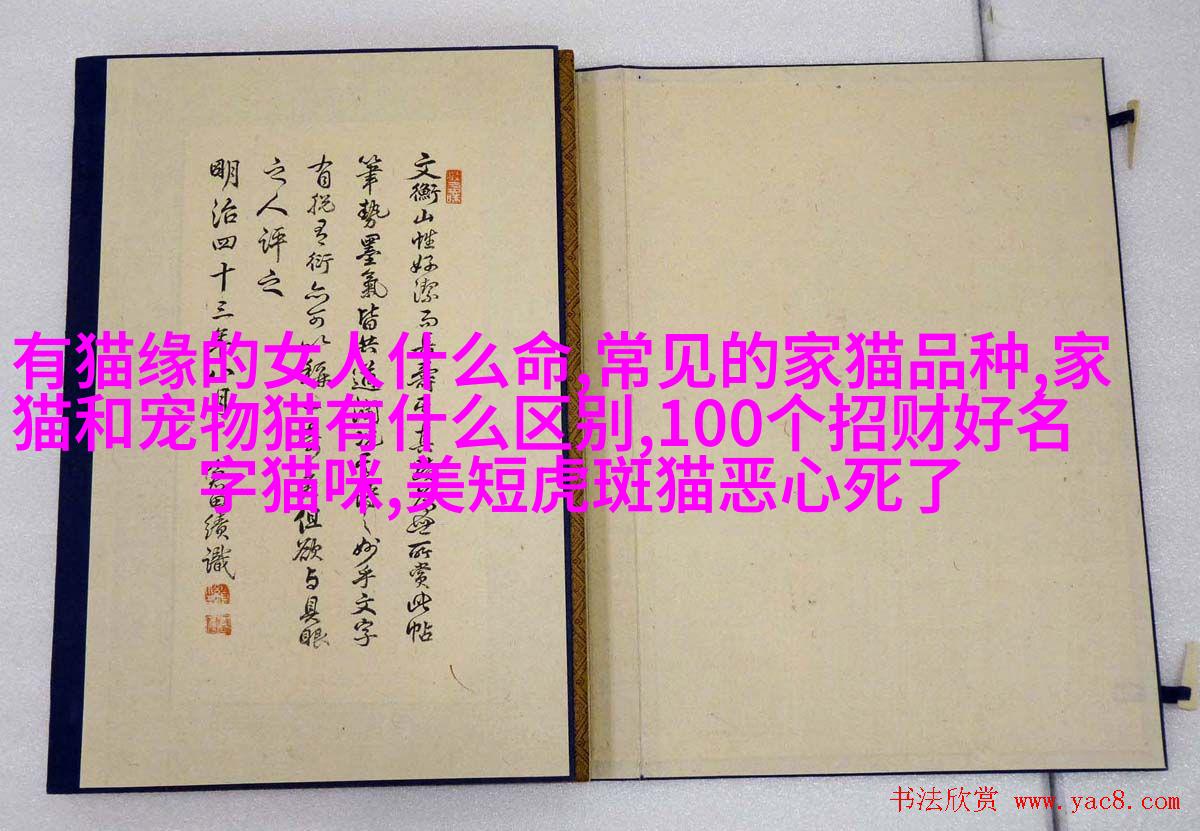 文衡山性好潔而壽所賞此帖
筆勢墨氣皆妙乎文字
有衍亦可但欲与具眼
之人評之
明治四十三年月田績識
有猫缘的女人什么命,常见的家猫品种,家
猫和宠物猫有什么区别,100个招财好名
字猫咪,美短虎斑猫恶心死了
书法欣赏 www.yac8.com